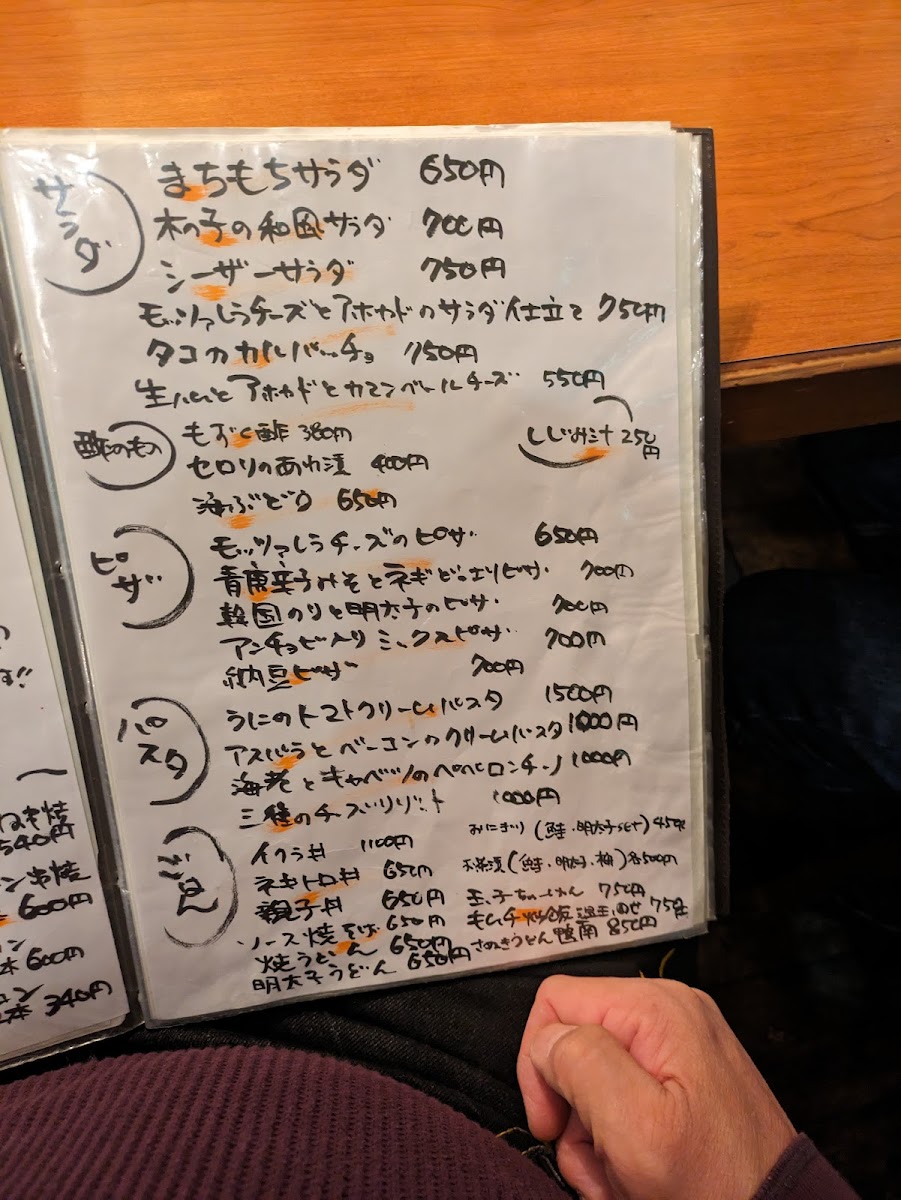 サラダ
まちもちサラダ 650円
木の子の和風サラダ 700円
シーザーサラダ 750円
モッツァレラチーズとアボカドのサラダ仕立て 750円
タコのカルパッチョ 750円
生ハムとアボカドとカマンベールチーズ 550円
酢のもの
もずく酢 380円
しじみ汁 250円
セロリのあわ漬 400円
海ぶどう 650円
ピザ
モッツァレラチーズのピザ 650円
青唐辛子みそとネギどっさりピザ 700円
韓国のりと明太子のピザ 700円
アンチョビ入りミックスピザ 700円
納豆ピザ 700円
パスタ
うにのトマトクリームパスタ 1500円
アスパラとベーコンのクリームパスタ 1000円
海老とキャベツのペペロンチーノ 1000円
三種のチーズリゾット 1000円
ごはん
イクラ丼 1100円
おにぎり(鮭・明太子set) 450円
ネギトロ丼 650円
お茶漬(鮭・明太子・梅)各500円
親子丼 650円
玉子ちゃーはん 750円
ソース焼そば 650円
キムチ炒飯温玉のせ 750円
焼うどん 650円
さぬきうどん鴨南 850円
明太子うどん 650円
ねぎ焼
540円
串焼
600円
本 600円
本 340円